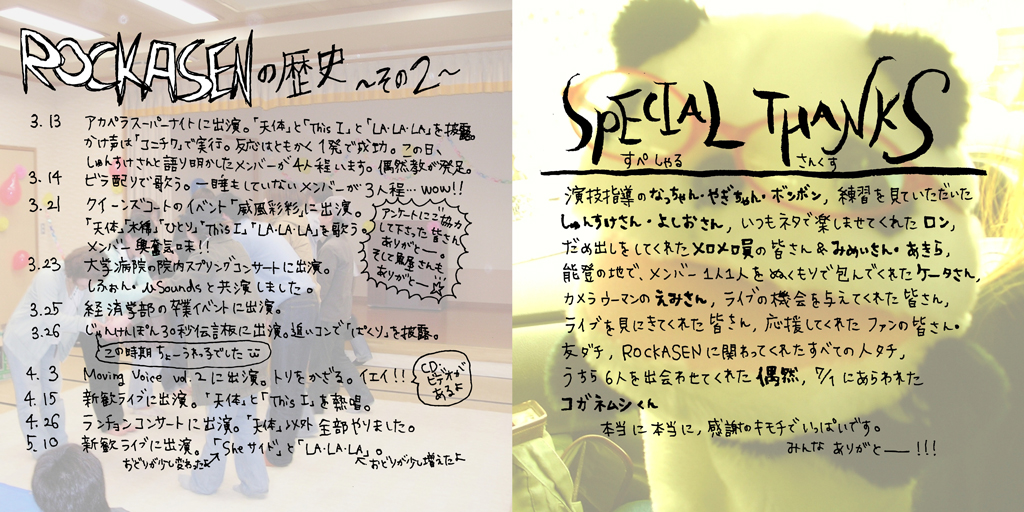 ROCKASENの歴史 〜その2〜
3.13 アカペラスーパーナイトに出演。「天体」と「This I」と「LA・LA・LA」を披露。
かけ声は「コニチワ」で実行。反応はともかく1発で成功。この日、
しゅんすけさんと語り明かしたメンバーが4人程います。偶然教が発足。
3.14 ビラ配りで歌う。一睡もしていないメンバーが3人程… wow!!
3.21 クイーンズコートのイベント「威風彩彩」に出演。
「天体」「木綿」「ひとり」「This I」「LA・LA・LA」を歌う。
メンバー興奮気味!!
アンケートにご協力
して下さった皆さん
ありがとー。
そして魚屋さんも
ありがとー!!
3.23 大学病院の院内スプリングコンサートに出演。
しふぉん・μSoundsと共演しました。
3.25 経済学部の卒業イベントに出演。
3.26 じゃんけんぽん30秒伝言板に出演。追いコンで「ぱくり」を披露。
この時期ちょーうれるでした
4.3 Moving Voice vol.2に出演。トリをかざる。イエイ!!
CDと
ビデオが
あるよ
4.15 新歓ライブに出演。「天体」と「This I」を熱唱。
4.26 ランチョンコンサートに出演。「天体」以外全部やりました。
5.10 新歓ライブに出演。「Sheサイド」と「LA・LA・LA」。
おどりが少し変わったよ おどりが少し増えたよ
SPECIAL THANKS
すぺしゃる さんくす
演技指導のなっちゃん・やぎちゃん・ボンボン, 練習を見ていただいた
しゅんすけさん・よしおさん, いつもネタで楽しませてくれたロン,
だめ出しをしてくれたメロメロ員の皆さん&みめいさん・あきら,
能登の地で, メンバー1人1人をぬくもりで包んでくれたケータさん,
カメラウーマンのえみさん, ライブの機会を与えてくれた皆さん,
ライブを見にきてくれた皆さん, 応援してくれたファンの皆さん・
友ダチ, ROCKASENに関わってくれたすべての人タチ,
うちら6人を出会わせてくれた偶然, 7/1にあらわれた
コガネムシくん
本当に本当に, 感謝のキモチでいっぱいです。
みんなありがとー!!!